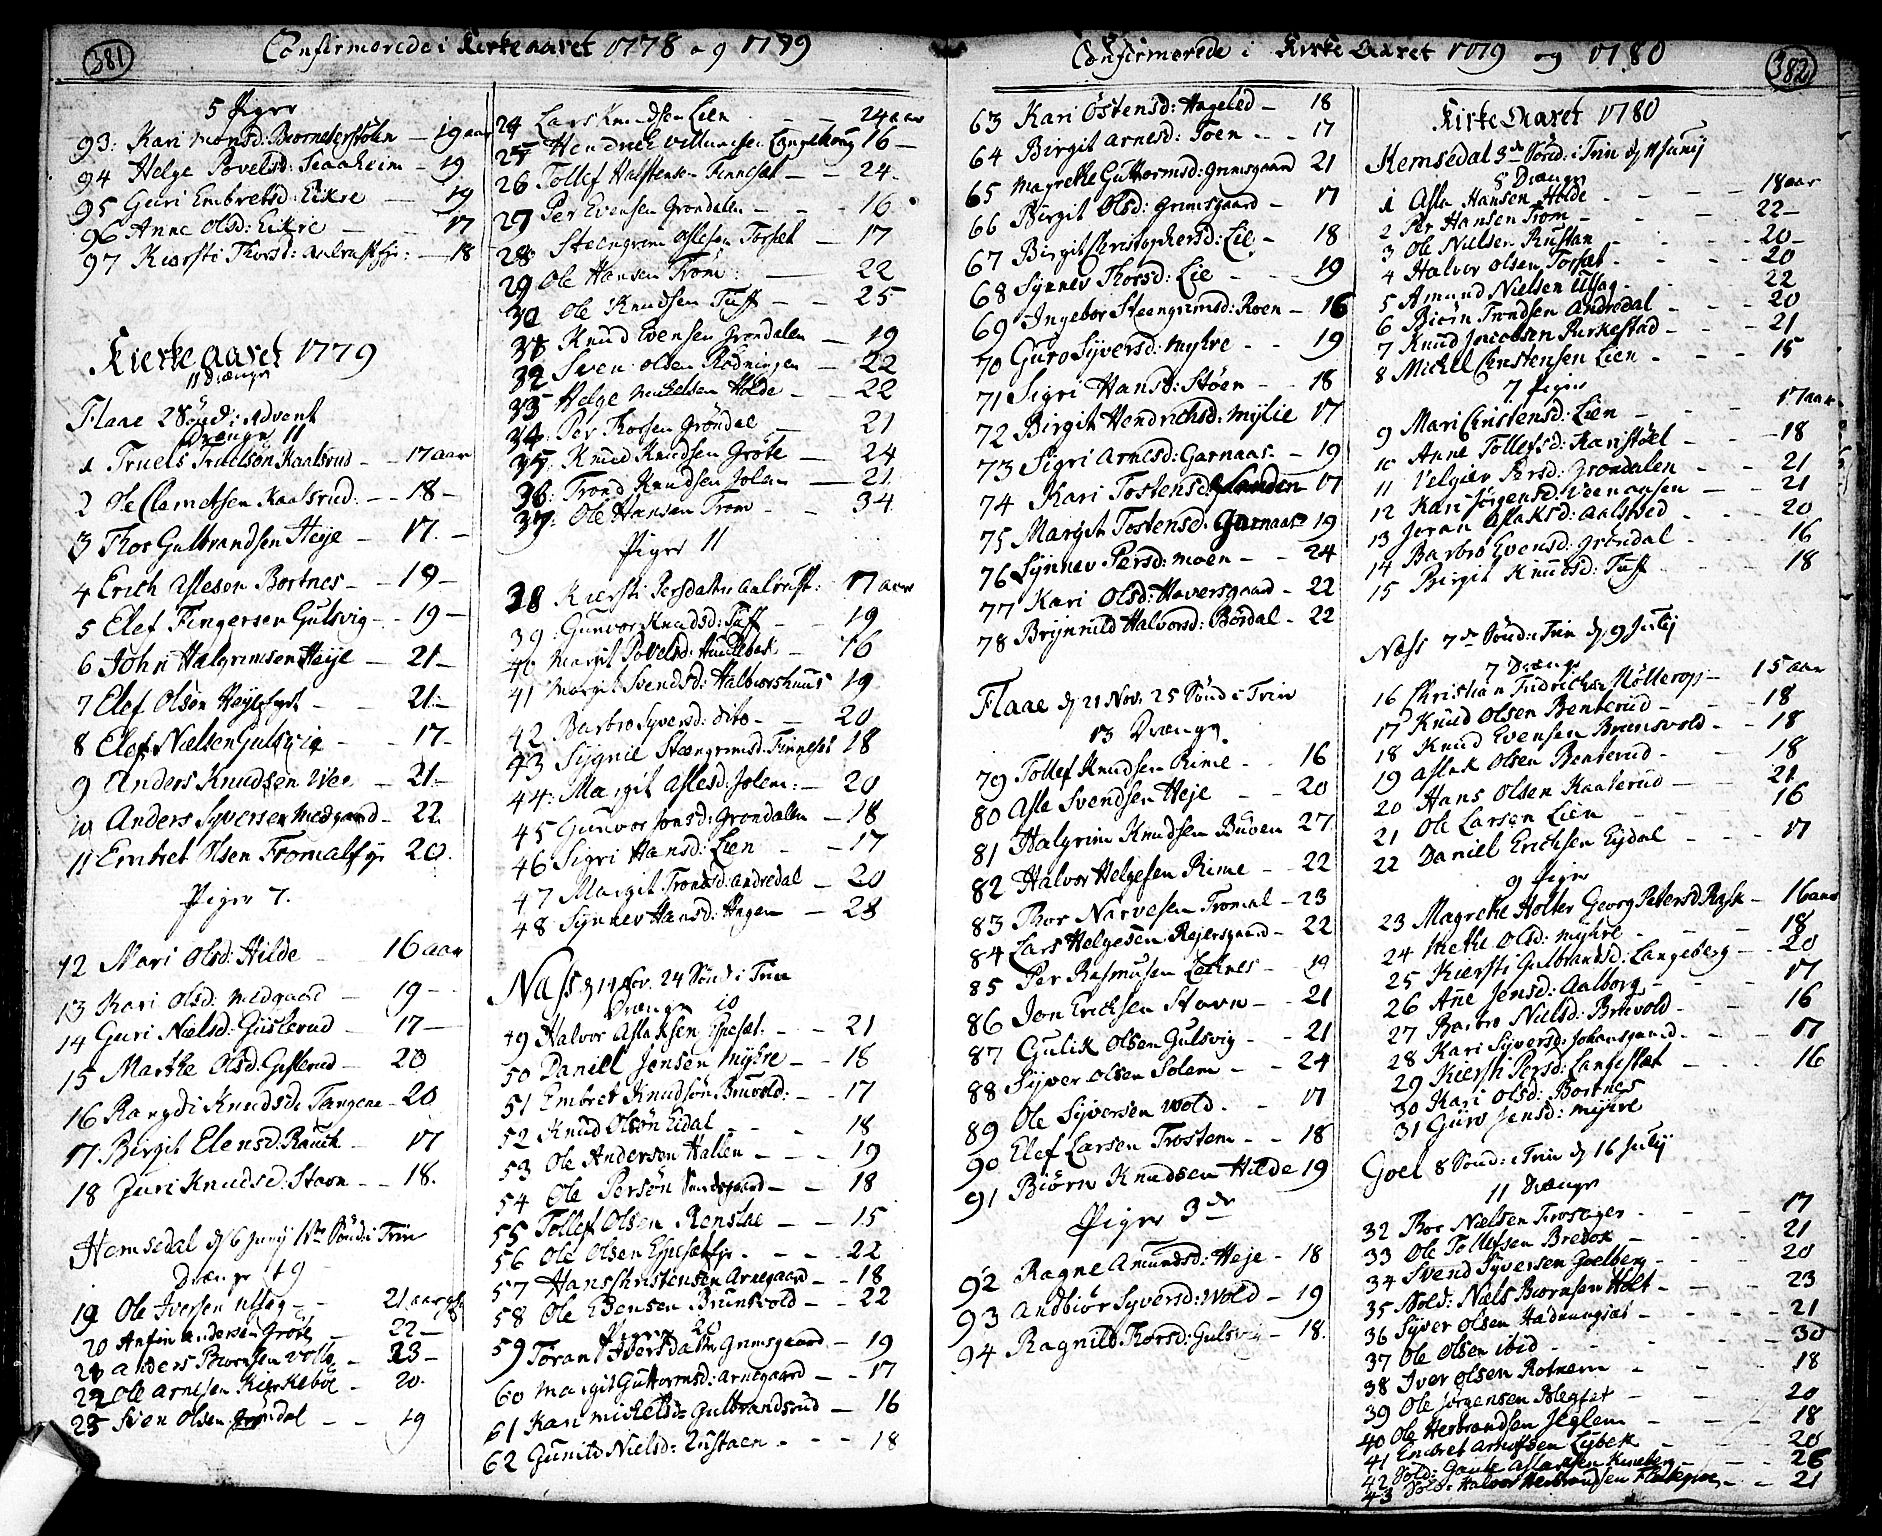 381
Confirmerede i Kirke aaret 1778 og 1779
5 Piger
93: Kari Monsd: Biørneberstølen – 19 aar
94 Helge Povelsd: – 19
95 Guri Embretsd: Eikre – 19
96 Anne Olsd: Eikre – 17
97 Kiersti Thorsd: – 18
Kierke aaret 1779
11 Drænge
Flaae 2 Sönd: i Advent
Drænge 11
1 Truels Truelsøn Kaalsrud – 17 aar
2 Ole Clemetsen Kaalsrud – 18 –
3 Thor Gulbrandsen Heje – 17. –
4 Erich Aslesøn Bortnes – 19 –
5 Elef Fingersen Gulsvig – 19 –
6 John Halgrimsen Heje – 21 –
7 Elef Olsøn Heje – 21 –
8 Elef Nielsen Gulsvig – 17 –
9 Anders Knudsen Wee – 21 –
10 Anders Syversen Medgaard – 22
11 Embret Olsen Tromalf – 20
Piger 7.
12 Mari Olsd: Hilde – 16 aar
13 Kari Olsd: Medgaard – 19 –
14 Guri Nielsd: Gisterud – 17 –
15 Marthe Olsd: Gisterud – 20
16 Rangdi Knudsd: Tangene – 20
17 Birgit Elensd: Rauck – 17
18 Juri Knudsd: Stavn – 18.
Hemsedal d 6 Junij 1ste Sönd: i Trin
Drænge 19
19 Ole Iversen Ulsag – 21 aar
20 Anfin Andersen Grøte – 22 –
21 Anders Biørnsen – 23 –
22 Ole Arnesen Kierkeboe – 20.
23 Sven Olsen Grøndal – 19
24 Lars Knudsen Lien – 24 aar
25 Hendrich Villumsen – 16 –
26 Tollef Halstensen Finneset – 24.
27 Per Evensen Grøndalen – 16
28 Steengrim Aslesen Torset – 17
29 Ole Hansen Trøm – 22
30 Ole Knudsen Tuff – 25
31 Knud Evensen Grøndalen – 19
32 Sven Olsen Rødningen – 22
33 Helge Michelsen Holde – 22
34 Per Thorsen Grøndal – 21
35 Knud Knudsen Grøte – 24
36 Trond Knudsen Jolen – 21
37 Ole Hansen Trøm – 34
Piger 11
38 Kiersti Persdatter – 17 aar
39: Gunvor Knudsd: Tuff – 19
40 Margit Povelsd: – 16
41 Margit Svendsd: Halbiørshuus 19
42 Barbro Syversd: dito – 20
43 Sygnil Steengrimsd: Finneset 18
44: Margit Aslesd: Jolen: – 20
45 Gunvor Jonsd: Grøndalen – 18
46 Sigri Hansd: Lien – 17
47 Margit Trondsd: Andredal – 20
48 Synnev Hansd: Hagen – 28
Næss d 14 Nov. 24 Sönd: i Trin
Drænge 10
49 Halvor Aslaksen Espeset – 21
50 Daniel Jensen Myhre – 18
51 Embret Knudsøn Bruvold: – 17
52 Knud Olsøn Eidal – 18
53 Ole Andersøn Hallen – 19
54 Ole Persøn Sundsgaard – 18
55 Tollef Olsen Renslae – 15
56 Ole Olsen Espeset – 22
57 Hans Christensen Arnegaard – 18
58 Ole Edensen Brunsvold – 22
Piger 20
59 Toran Iversdatter Grimsgaard – 19
60 Margit Guttormsd: Arnegaard – 17
61 Kari Michelsd: Gulbrandsrud – 16
62 Gunild Nielsd: Rustaen – 18
382
Confirmerede i Kirke Aaret 1779 og 1780
63 Kari Östensd: Hageled – 18
64 Birgit Arnesd: Toen – 17
65 Magrethe Guttormsd: Grimsgaard 21
66 Birgit Olsd: Grimsgaard – 17
67 Birgit Christophersd: Lie – 18
68 Synnev Thorsd: Lie – 19
69 Ingebor Steengrimsd: Roen – 16
70 Guro Syversd: Myhre – 19
71 Sigri Hansd: Støen – 18
72 Birgit Hendrichsd: Mylie 17
73 Sigri Arnesd: Garnaas – 19
74 Kari Tostensd: – 17
75 Margit Tostensd: Garnaas 19
76 Synnev Persd: Moen – 24
77 Kari Olsd: Haversgaard – 22
78 Brynnild Halvorsd: Bordal – 22
Flaae d 21 Nov. 25 Sönd i Trin
13 Drænge
79 Tollef Knudsen Rime – 16
80 Asle Svendsen Heje – 20
81 Halgrim Knudsen Buven 27
82 Halvor Helgesen Rime – 22
83 Thor Narvesen Tromal – 23
84 Lars Helgesen Rejersgaard – 22
85 Per Rasmusen – 19
86 Jon Erichsen Stavn – 21
87 Gulik Olsen Gulsvig – 21
88 Syver Olsen Solem – 24
89 Ole Syversen Wold – 17
90 Elef Larsen Trostem – 18
91 Biørn Knudsen Hilde 19
Piger 3de
92 Ragne Amundsd: Heje – 18
93 Andbiør Syversd: Wold – 19
94 Ragnild Thorsd: Gulsvig – 18.
Kirke Aaret 1780
Hemsedal 3de Sönd: i Trin d 11 Junij
5 Drænge
1 Asle Hansen Holde – 18 aar
2 Per Hansen Trøm – 22 –
3 Ole Nielsen Rustan – 20 –
4 Halvor Olsen Torset – 20
5 Amund Nielsen Ulsag – 22
6 Biørn Trondsen Andredal – 20
7 Knud Jacobsen – 21
8 Michel Christensen Lien – 15
7 Piger
9 Mari Christensd: Lien – 17 aar
10 Anne Tollefsd: – 18
11 Velgier Persd: Grøndalen – 21
12 Kari Jörgensd: – 21
13 Joran Aslaksd: – 20
14 Barbro Evensd: Grøndal – 16
15 Birgit Knudsd: Tuff – 18
Næss 7de Sönd: i Trin d 9 Julij
7 Drænge
16 Christian Fridrichsen Møllerop – 15 aar
17 Knud Olsen Benterud – 18
18 Knud Evensen Brunsvold – 18
19 Aslak Olsen Benterud – 18
20 Hans Olsen Kaaterud – 21
21 Ole Larsen Lien – 16
22 Daniel Erichsen Eydal – 17
9 Piger
23 Magrethe Holter Georg Petersd Rask – 16 aar
24 Kethe Olsd: Myhre – 18
25 Kiersti Gulbrandsd: Langeberg – 20
26 Añe Jensd: Aalborg – 17
27 Barbro Nielsd: Bruvold – 16
28 Kari Syversd: Johansgaard – 17
29 Kiersti Persd: Langeslæt – 16
30 Kari Olsd: Bortnes
31 Guro Jensd: Myhre
Goel 8 Sönd: i Trin d 16 Julij
11 Drænge
32 Thor Nielsen Trøsager – 17
33 Ole Tollefsen Bredok – 21
34 Svend Syversen Goelberg – 20
35 Sold: Niels Biørnsen Holt – 23
36 Syver Olsen Hadnungset – 21
37 Ole Olsen ibid – 30
38 Iver Olsen Rotnem – 18
39 Ole Jørgensen Slegset – 20
40 Ole Herbrandsen Jeglem – 18
41 Embret Arnesen Lybek – 20
42 Sold: Gaute Aslaksen – 26
43 Sold: Halvor Herbrandsen – 21